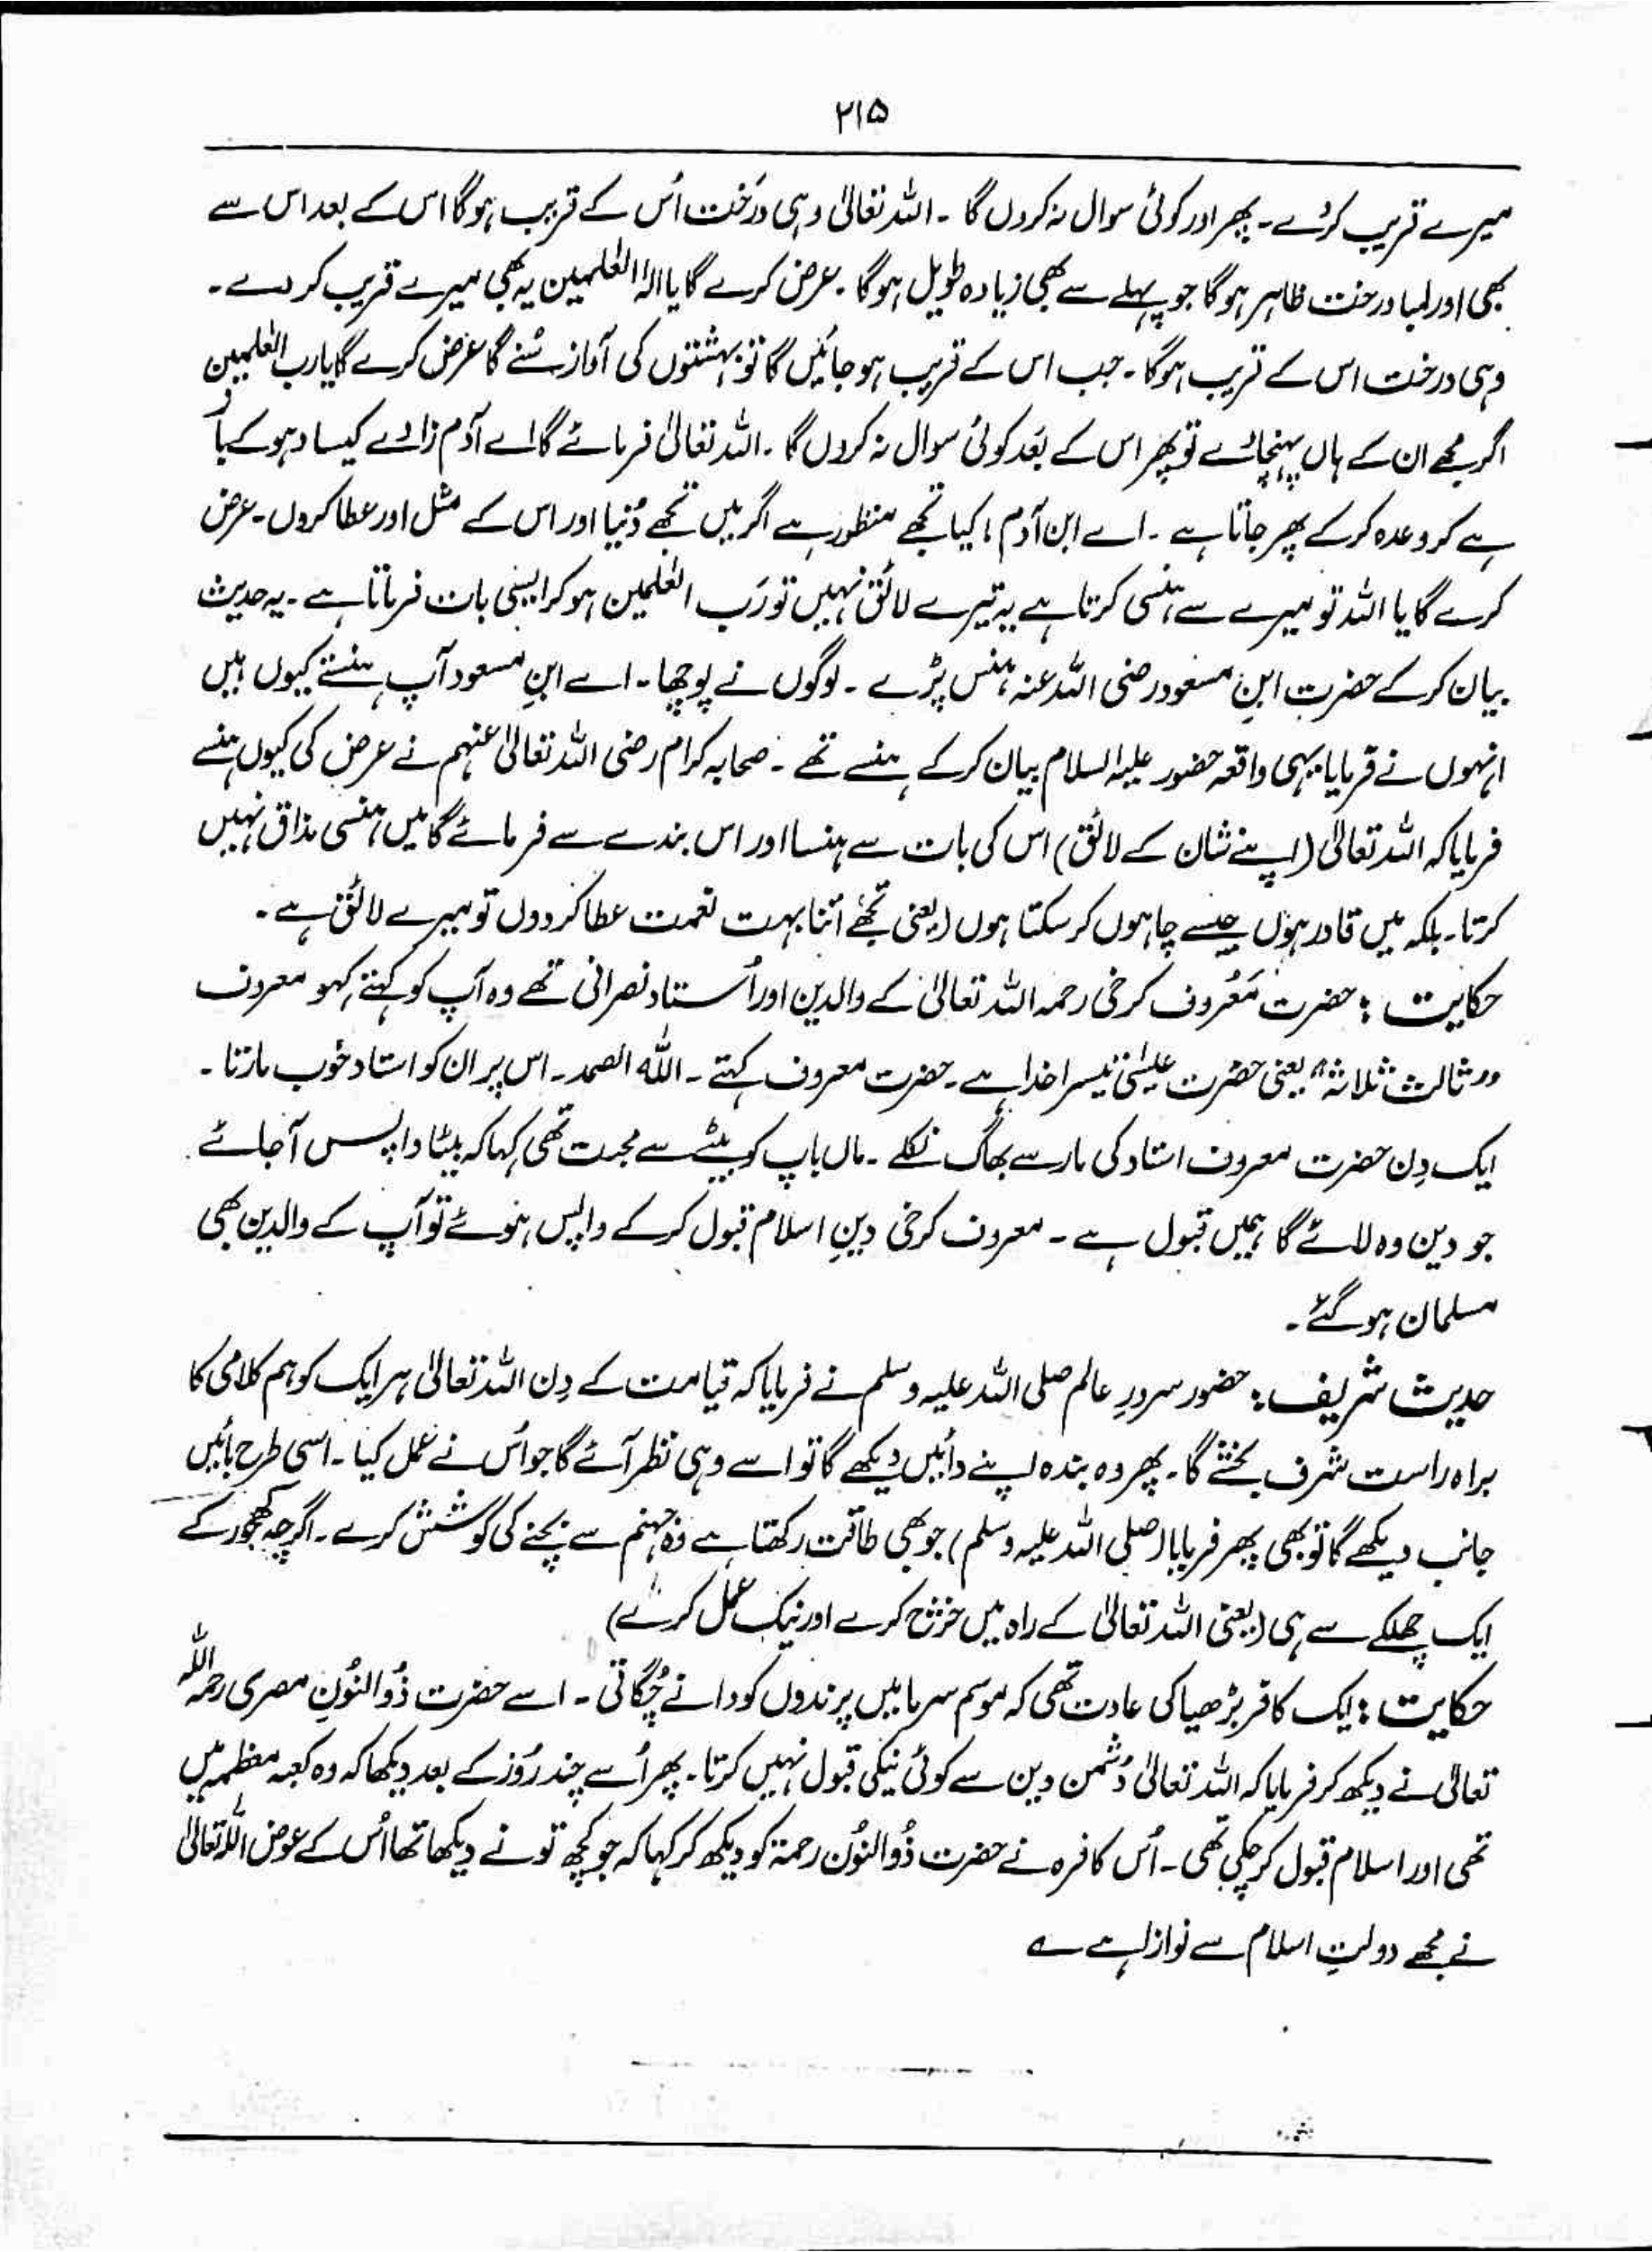 ۲۱۵
میرے قریب کر دے ۔ پھر اور کوئی سوال نہ کروں گا ۔ اللہ تعالیٰ وہی درخت اُس کے قریب ہو گا اس کے بعد اس سے
بھی اور لمبا درخت ظاہر ہو گا جو پہلے سے بھی زیادہ طویل ہو گا ۔ عرض کرے گا یا الٰہ العٰلمین یہ بھی میرے قریب کر دے ۔
وہی درخت اس کے قریب ہوگا ۔ جب اس کے قریب ہو جائیں گا تو بہشتوں کی آواز سُنے گا عرض کرے گا یا رب العٰلمین
اگر مجھے ان کے ہاں پہنچا دے تو پھر اس کے بَعد کوئی سوال نہ کروں گا ۔ اللہ تعالیٰ فرمائے گا اے آدم زادے کیسا دہوکے باز
ہے کہ وعدہ کر کے پھر جاتا ہے ۔ اے ابن آدم ! کیا تجھے منظور ہے اگر میں تجھے دُنیا اور اس کے مثل اور عطا کروں ۔ عرض
کرے گا یا اللہ تو میرے سے ہنسی کرتا ہے یہ تیرے لائق نہیں تو رَب العٰلمین ہو کر ایسی بات فرماتا ہے ۔ یہ حدیث
بیان کر کے حضرت ابنِ مسعود رضی اللہ عنہ ہنس پڑے ۔ لوگوں نے پوچھا ۔ اے ابنِ مسعود آپ ہنستے کیوں ہیں
انہوں نے فرمایا یہی واقعہ حضور علیہ السلام بیان کر کے ہنسے تھے ۔ صحابہ کرام رضی اللہ تعالیٰ عنہم نے عرض کی کیوں ہنسے
فرمایا کہ اللہ تعالیٰ (اپنے شان کے لائق) اس کی بات سے ہنسا اور اس بندے سے فرمائے گا میں ہنسی مذاق نہیں
کرتا ۔ بلکہ میں قادر ہوں جیسے چاہوں کر سکتا ہوں (یعنی تجھے اتنا بہت نعمت عطا کر دوں تو میرے لائق ہے ۔
حکایت : حضرت مَعُروف کرخی رحمہ اللہ تعالیٰ کے والدین اور اُستاد نصرانی تھے وہ آپ کو کہتے کہو معروف
”ثالث ثلاثہ“ یعنی حضرت عیسٰی تیسرا خدا ہے ۔ حضرت معروف کہتے ۔ اللہ الصمد ۔ اس پر ان کو استاد خوب مارتا ۔
ایک دِن حضرت معروف استاد کی مار سے بھاگ نکلے ۔ ماں باپ کو بیٹے سے محبت تھی کہا کہ بیٹا واپس آ جائے ۔
جو دین وہ لائے گا ہمیں قبول ہے ۔ معروف کرخی دینِ اسلام قبول کر کے واپس ہوئے تو آپ کے والدین بھی
مسلمان ہو گئے ۔
حدیث شریف : حضور سرورِ عالم صلی اللہ علیہ وسلم نے فرمایا کہ قیامت کے دِن اللہ تعالیٰ ہر ایک کو ہم کلامی کا
براہ راست شرف بخشے گا ۔ پھر وہ بندہ اپنے دائیں دیکھے گا تو اسے وہی نظر آئے گا جو اُس نے عمل کیا ۔ اسی طرح بائیں
جانب دیکھے گا تو بھی پھر فرمایا (صلی اللہ علیہ وسلم) جو بھی طاقت رکھتا ہے وہ جہنم سے بچنے کی کوشش کرے ۔ اگرچہ کھجور کے
ایک چھلکے سے ہی (یعنی اللہ تعالیٰ کے راہ میں خرچ کرے اور نیک عمل کرے)
حکایت : ایک کافر بڑھیا کی عادت تھی کہ موسمِ سرما میں پرندوں کو دانے چُگاتی ۔ اسے حضرت ذُوالنُونِ مصری رحمہ اللہ
تعالیٰ نے دیکھ کر فرمایا کہ اللہ تعالیٰ دُشمن دین سے کوئی نیکی قبول نہیں کرتا ۔ پھر اُسے چند رُوز کے بعد دیکھا کہ وہ کعبہ معظمہ میں
تھی اور اسلام قبول کر چکی تھی ۔ اُس کافرہ نے حضرت ذُوالنُون رحمۃ کو دیکھ کر کہا کہ جو کچھ تو نے دیکھا تھا اُس کے عوض اللہ تعالیٰ
نے مجھے دولتِ اسلام سے نوازا ہے ؎